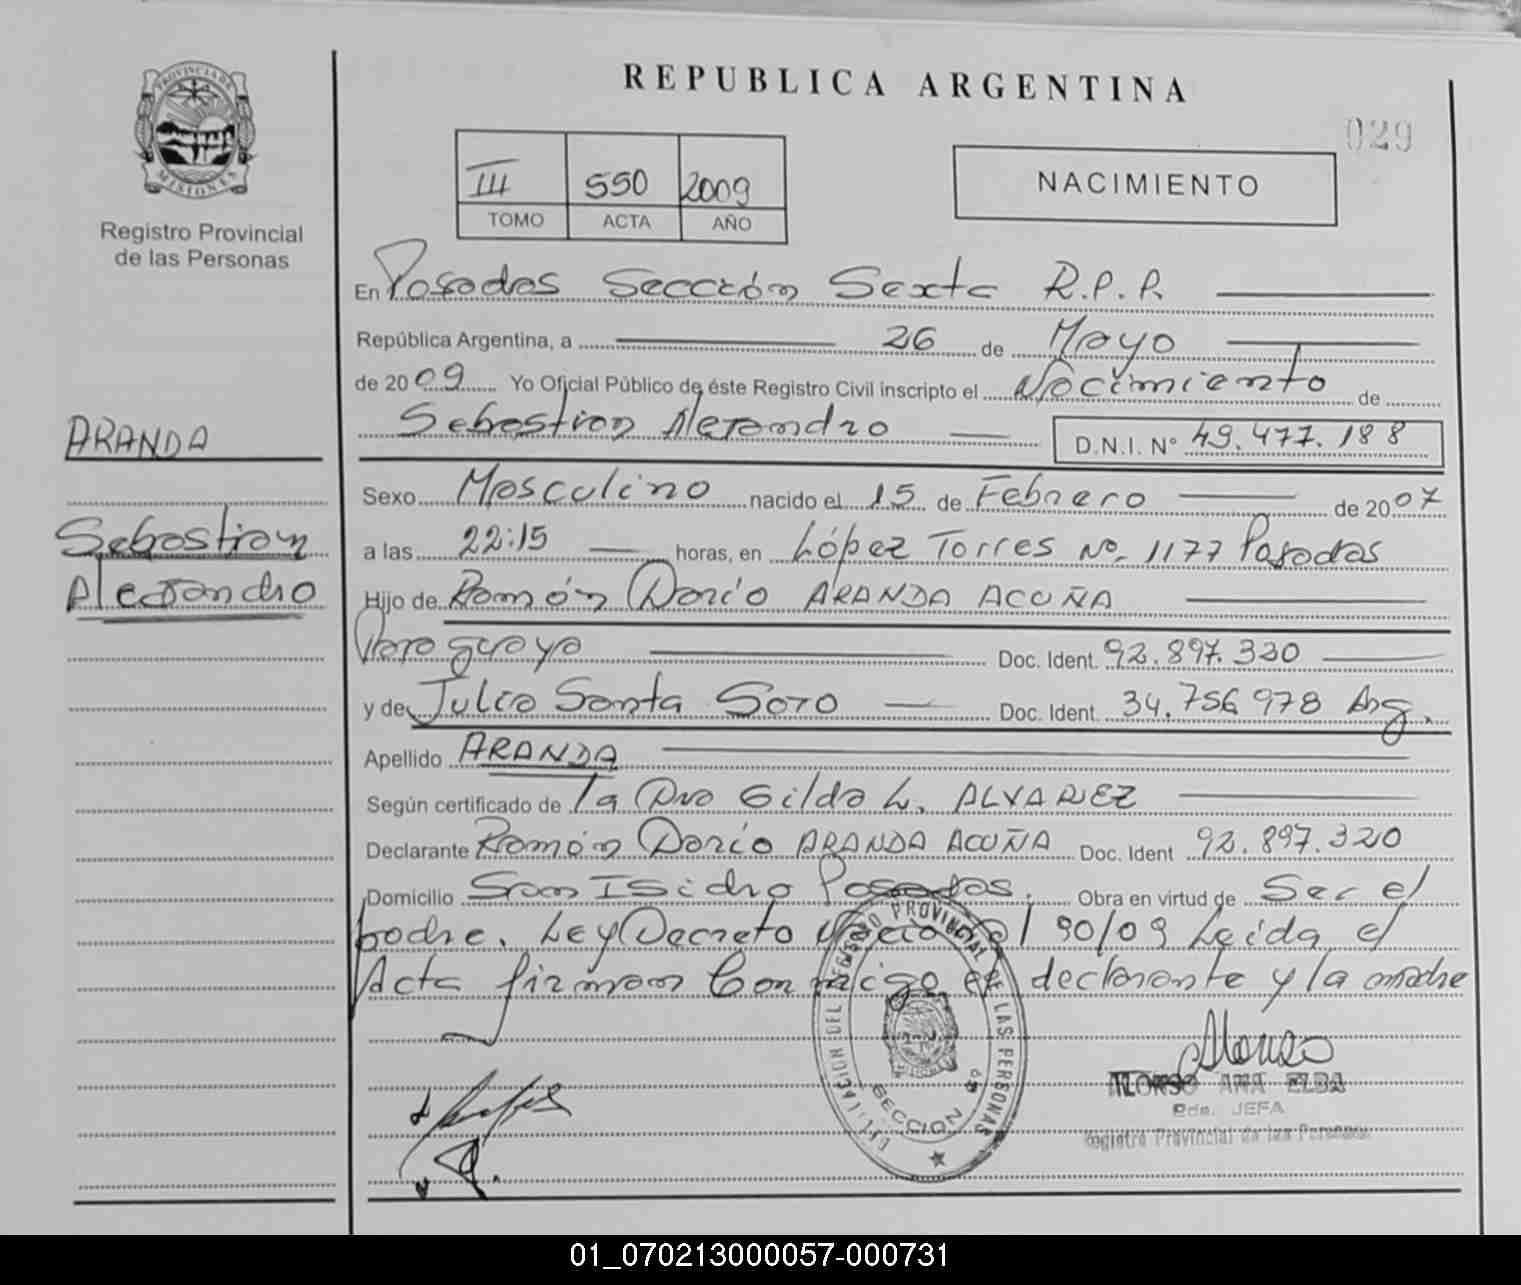 PROVINCIA DE
MISIONES
Registro Provincial
de las Personas
ARANDA
Sebastian
Alejandro
REPUBLICA ARGENTINA
029
III 550 2009
TOMO ACTA AÑO
NACIMIENTO
En Posadas Sección Sexta R.P.P.
República Argentina, a 26 de Mayo
de 2009 Yo Oficial Público de éste Registro Civil inscripto el Nacimiento de
Sebastian Alejandro D.N.I. Nº 49.477.188
Sexo Masculino nacido el 15 de Febrero de 2007
a las 22:15 horas, en López Torres No. 1177 Posadas
Hijo de Ramón Darío ARANDA ACUÑA
Paraguaya Doc. Ident. 92.897.320
y de Julia Santa Soto Doc. Ident. 34.756978 Arg.
Apellido ARANDA
Según certificado de la Dra Gilda L. ALVAREZ
Declarante Ramón Darío ARANDA ACUÑA Doc. Ident 92.897.320
Domicilio San Isidro Posadas. Obra en virtud de Ser el
padre. Ley Decreto Nacional 90/09 Leida el
Acta firman Conmigo el declarante y la madre
REGISTRO PROVINCIAL DE LAS PERSONAS
SECCION 6ª
ALONSO ANA ELBA
JEFA
Registro Provincial de las Personas
01_070213000057-000731